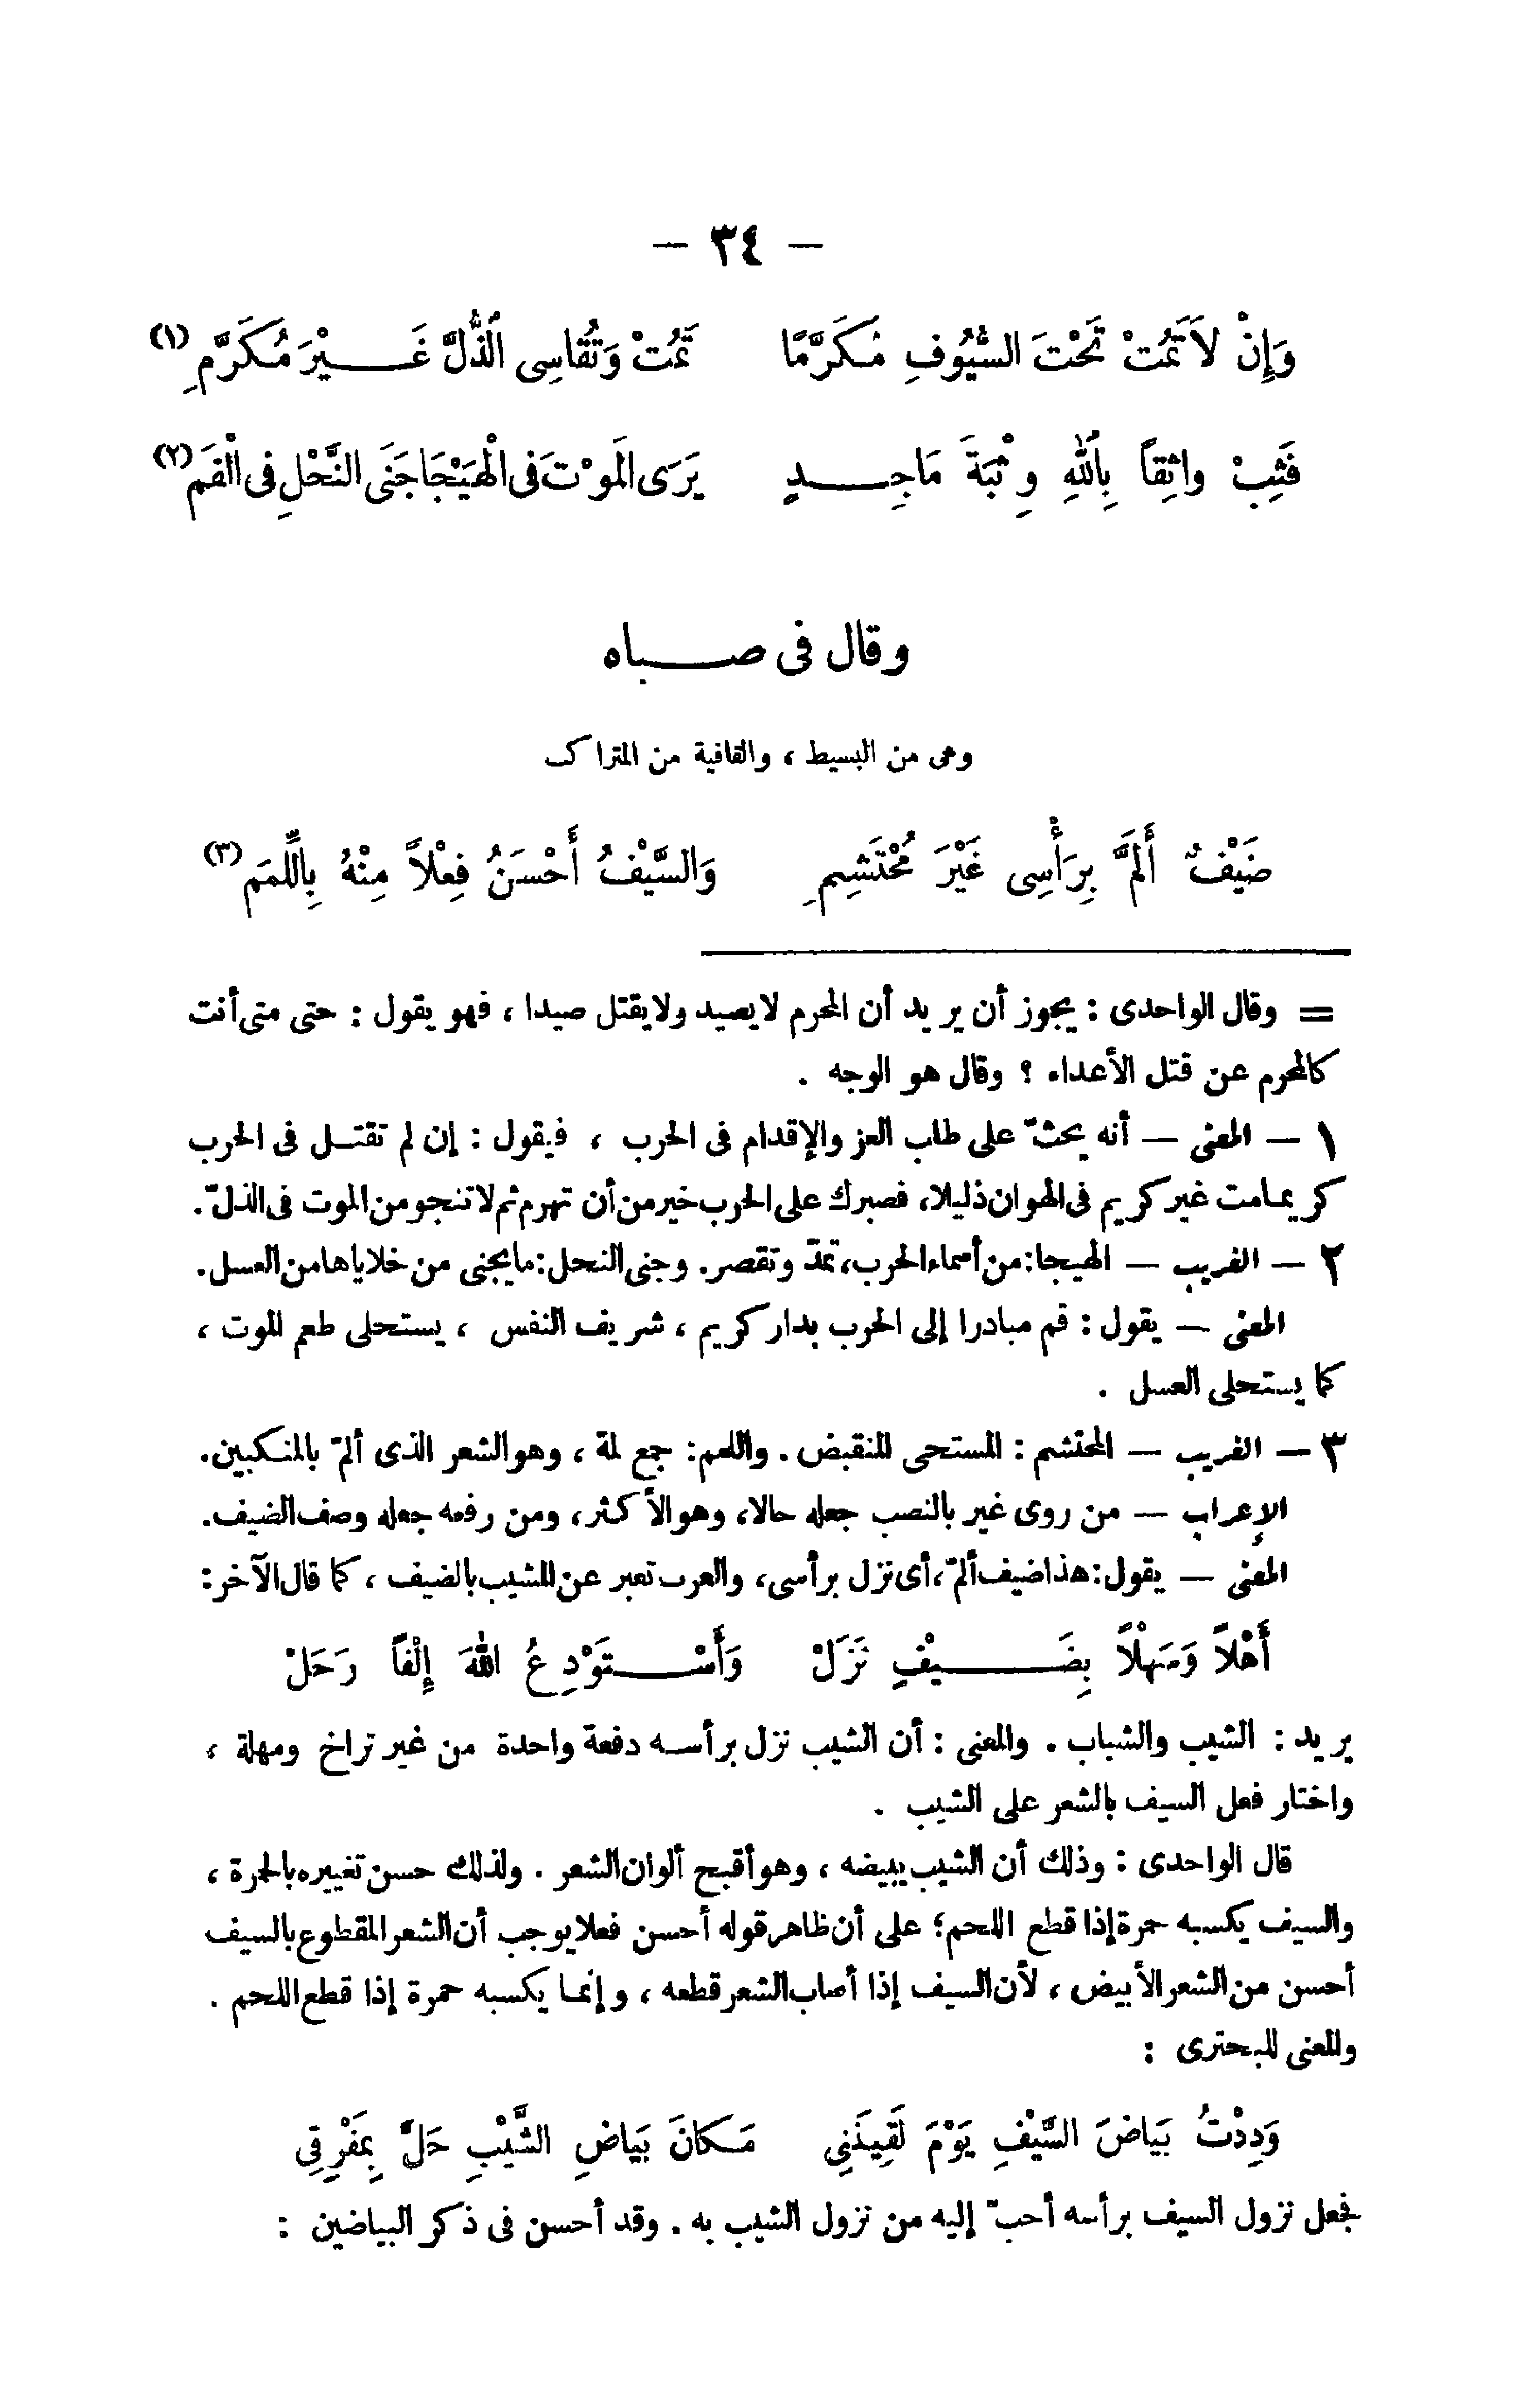 — ٣٤ —
وَإِنْ لاَ تَمُتْ تَحْتَ السُّيُوفِ مُكَرَّمًا تَمُتْ وَتُقَاسِى الذُّلَّ غَــيْرَ مُكَرَّمِ (١)
فَثِبْ واثِقاً بِاللهِ وِثْبَةَ مَاجِــدٍ يَرَى المَوْتَ فى الْهَيْجَا جَنَى النَّحْلِ فى الْفَمِ (٢)
وقال فى صــباه
وهى من البسيط ، والقافية من المتراكب
ضَيْفٌ أَلَمَّ بِرَأْسِى غَيْرَ مُحْتَشِمِ وَالسَّيْفُ أَحْسَنُ فِعْلاً مِنْهُ بِاللِّمَمِ (٣)
= وقال الواحدى : يجوز أن يريد أن المحرم لايصيد ولايقتل صيدا ، فهو يقول : حتى متى أنت
كالمحرم عن قتل الأعداء ؟ وقال هو الوجه .
١ — المعنى — أنه يحثّ على طلب العز والإقدام فى الحرب ، فيقول : إن لم تقتــل فى الحرب
كريما مت غير كريم فى الهوان ذليلا، فصبرك على الحرب خير من أن تهرم ثم لا تنجو من الموت فى الذلّ .
٢ — الغريب — الهيجا: من أسماء الحرب، تمدّ وتقصر. وجنى النحل: ما يجنى من خلاياها من العسل.
المعنى — يقول : قم مبادرا إلى الحرب بدار كريم ، شريف النفس ، يستحلى طعم الموت ،
كما يستحلى العسل .
٣ — الغريب — المحتشم : المستحى المنقبض . واللمم: جمع لمة ، وهو الشعر الذى ألمّ بالمنكبين.
الإعراب — من روى غير بالنصب جعله حالا، وهو الأكثر، ومن رفعه جعله وصف الضيف.
المعنى — يقول: هذا ضيف ألمّ، أى نزل برأسى، والعرب تعبر عن المشيب بالضيف ، كما قال الآخر:
أَهْلاً وَسَهْلاً بِضَــيْفٍ نَزَلْ وَأَسْــتَوْدِعُ اللهَ إِلْفاً رَحَلْ
يريد : الشيب والشباب . والمعنى : أن الشيب نزل برأســه دفعة واحدة من غير تراخ ومهلة ،
واختار فعل السيف بالشعر على الشيب .
قال الواحدى : وذلك أن الشيب يبيضه ، وهو أقبح ألوان الشعر . ولذلك حسن تغييره بالحمرة ،
والسيف يكسبه حمرة إذا قطع اللحم؛ على أن ظاهر قوله أحسن فعلا يوجب أن الشعر المقطوع بالسيف
أحسن من الشعر الأبيض ، لأن السيف إذا أصاب الشعر قطعه ، وإنما يكسبه حمرة إذا قطع اللحم .
والمعنى للبحترى :
وَدِدْتُ بَيَاضَ السَّيْفِ يَوْمَ لَقِينَنِى مَكَانَ بَيَاضِ الشَّيْبِ حَلَّ بِمَفْرِقِى
فجعل نزول السيف برأسه أحبّ إليه من نزول الشيب به . وقد أحسن فى ذكر البياضين :